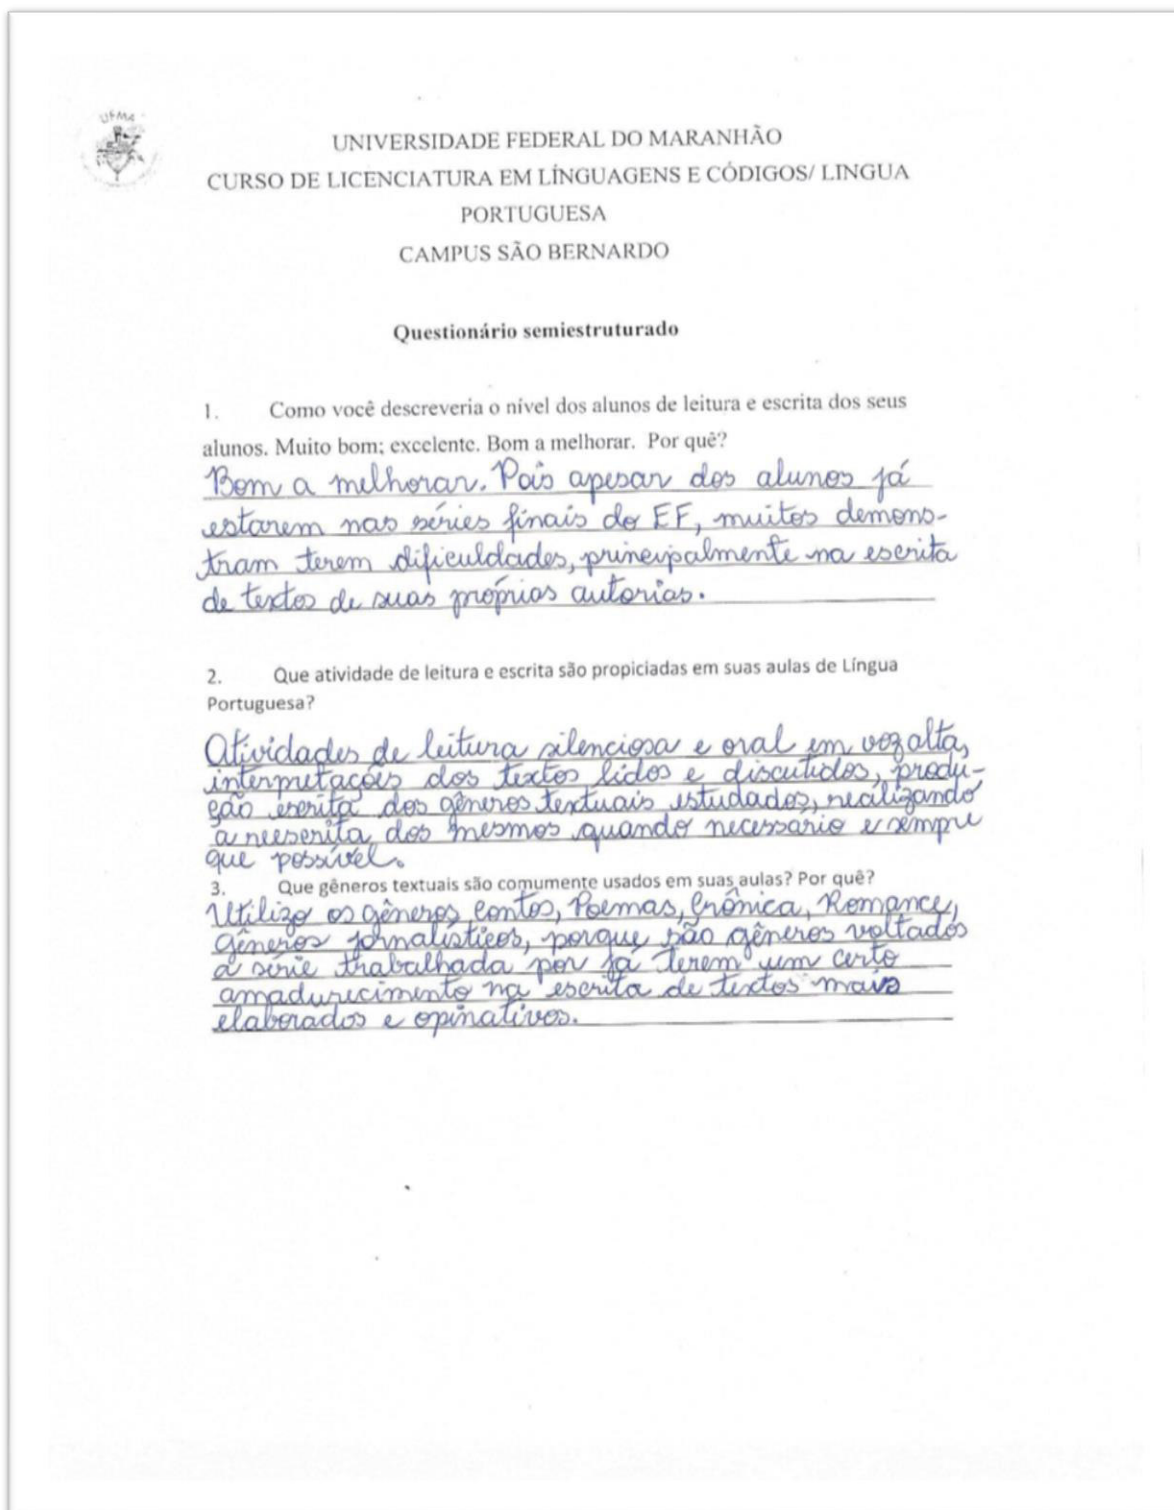 UFMA
UNIVERSIDADE FEDERAL DO MARANHÃO
CURSO DE LICENCIATURA EM LÍNGUAGENS E CÓDIGOS/ LINGUA
PORTUGUESA
CAMPUS SÃO BERNARDO
Questionário semiestruturado
1. Como você descreveria o nível dos alunos de leitura e escrita dos seus
alunos. Muito bom; excelente. Bom a melhorar. Por quê?
Bom a melhorar. Pois apesar dos alunos já
estarem nas séries finais do EF, muitos demons-
tram terem dificuldades, principalmente na escrita
de textos de suas próprias autorias.
2. Que atividade de leitura e escrita são propiciadas em suas aulas de Língua
Portuguesa?
Atividades de leitura silenciosa e oral em voz alta,
interpretações dos textos lidos e discutidos, produ-
ção escrita dos gêneros textuais estudados, realizando
a reescrita dos mesmos quando necessário e sempre
que possível.
3. Que gêneros textuais são comumente usados em suas aulas? Por quê?
Utilizo os gêneros, Contos, Poemas, Crônica, Romance,
gêneros jornalísticos, porque são gêneros voltados
a série trabalhada por já terem um certo
amadurecimento na escrita de textos mais
elaborados e opinativos.